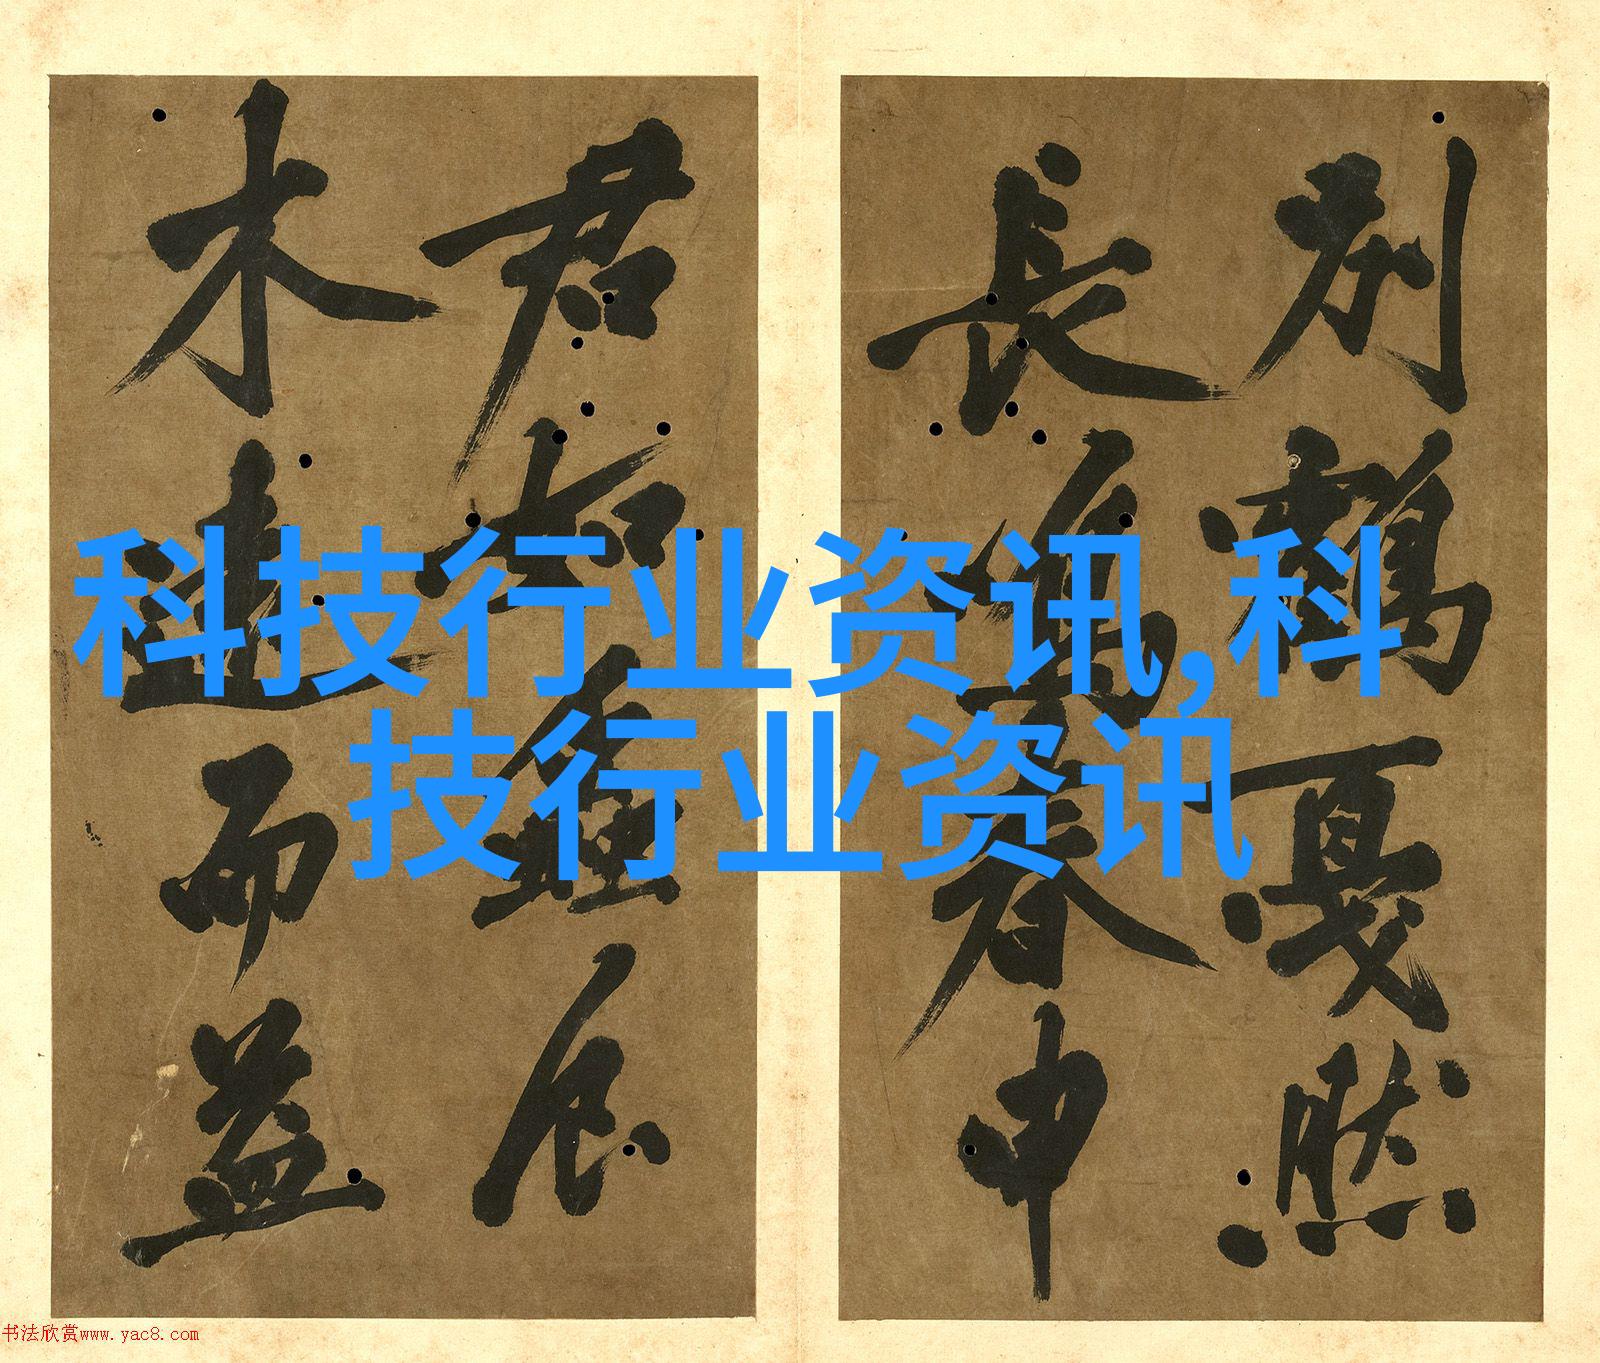 科技行业资讯,科
技行业资讯
別鶴戛然
長鳴春申
君
木而益
书法欣赏www.yac8.com